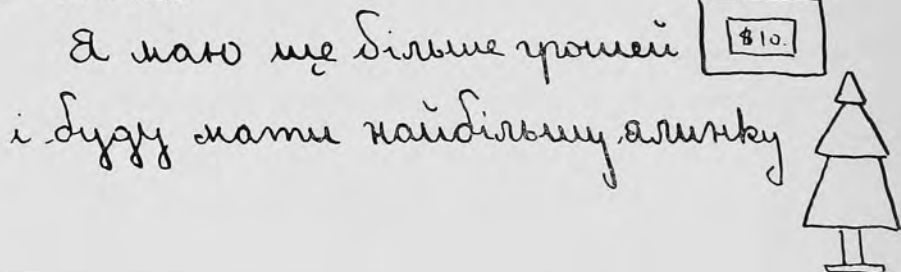 Я маю ще більше грошей $10.
і буду мати найбільшу ялинку